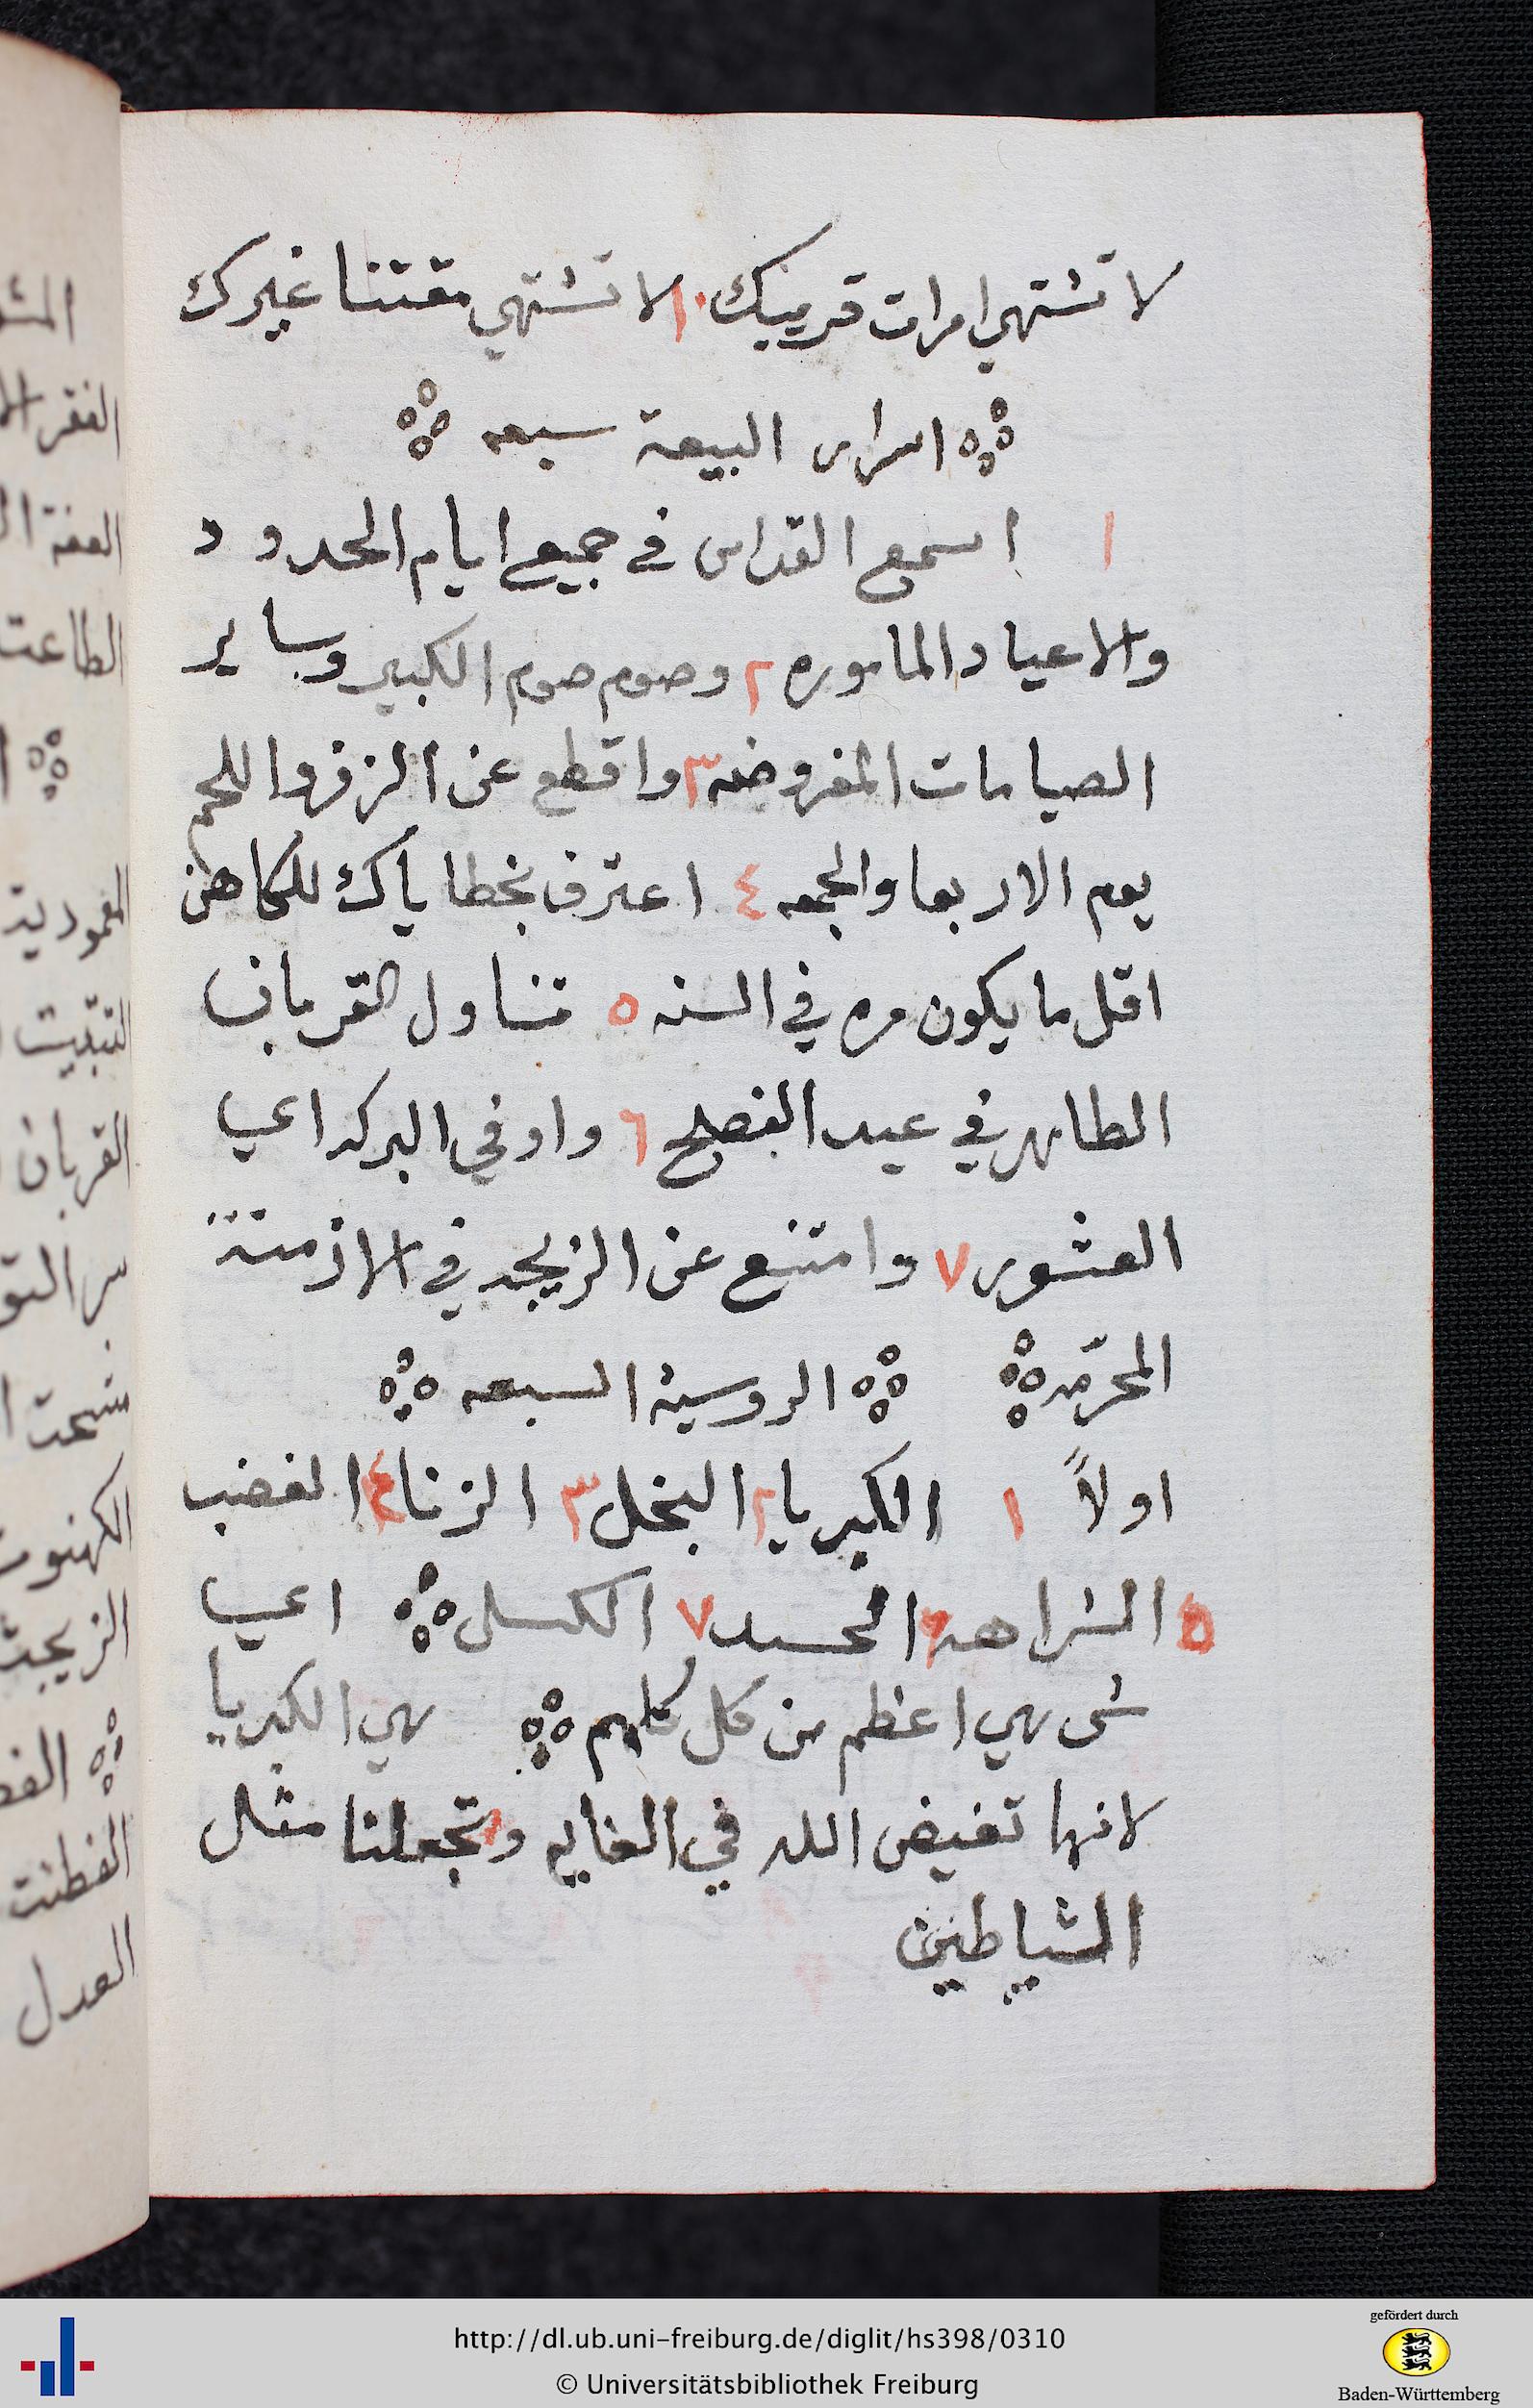 لا تشتهي امرات قريبك ١٠ لا تشتهي مقتنا غيرك
اسرار البيعة سبعه
١ اسمع القداس في جميع ايام الحدود
والاعياد الماموره ٢ وصوم صوم الكبير وساير
الصيامات المفروضه ٣ واقطع عن الزفر واللحم
يوم الاربعا والجمعه ٤ اعترف بخطاياك للكاهن
اقل ما يكون مره في السنه ٥ تناول القربان
الطاهر في عيد الفصح ٦ واوفي البركه اعي
العشور ٧ وامتنع عن الزيجه في الازمنة
المحرّمه الروسية السبعه
اولاً ١ الكبريا ٢ البخل ٣ الزنا ٤ الغضب
٥ الشراهه ٦ الحسد ٧ الكسل اعيا
شى هي اعظم من كل كلهم هي الكبريا
لانها تغيض الله في الغايه وتجعلنا مثل
الشياطين
المشو
الفقر
العفة
الطاعت
المعموديه
التتبيت
القربان
سر التو
مسحت
الكهنوت
الزيجت
الفض
الفطنت
العدل
http://dl.ub.uni-freiburg.de/diglit/hs398/0310
© Universitätsbibliothek Freiburg
gefördert durch
Baden-Württemberg